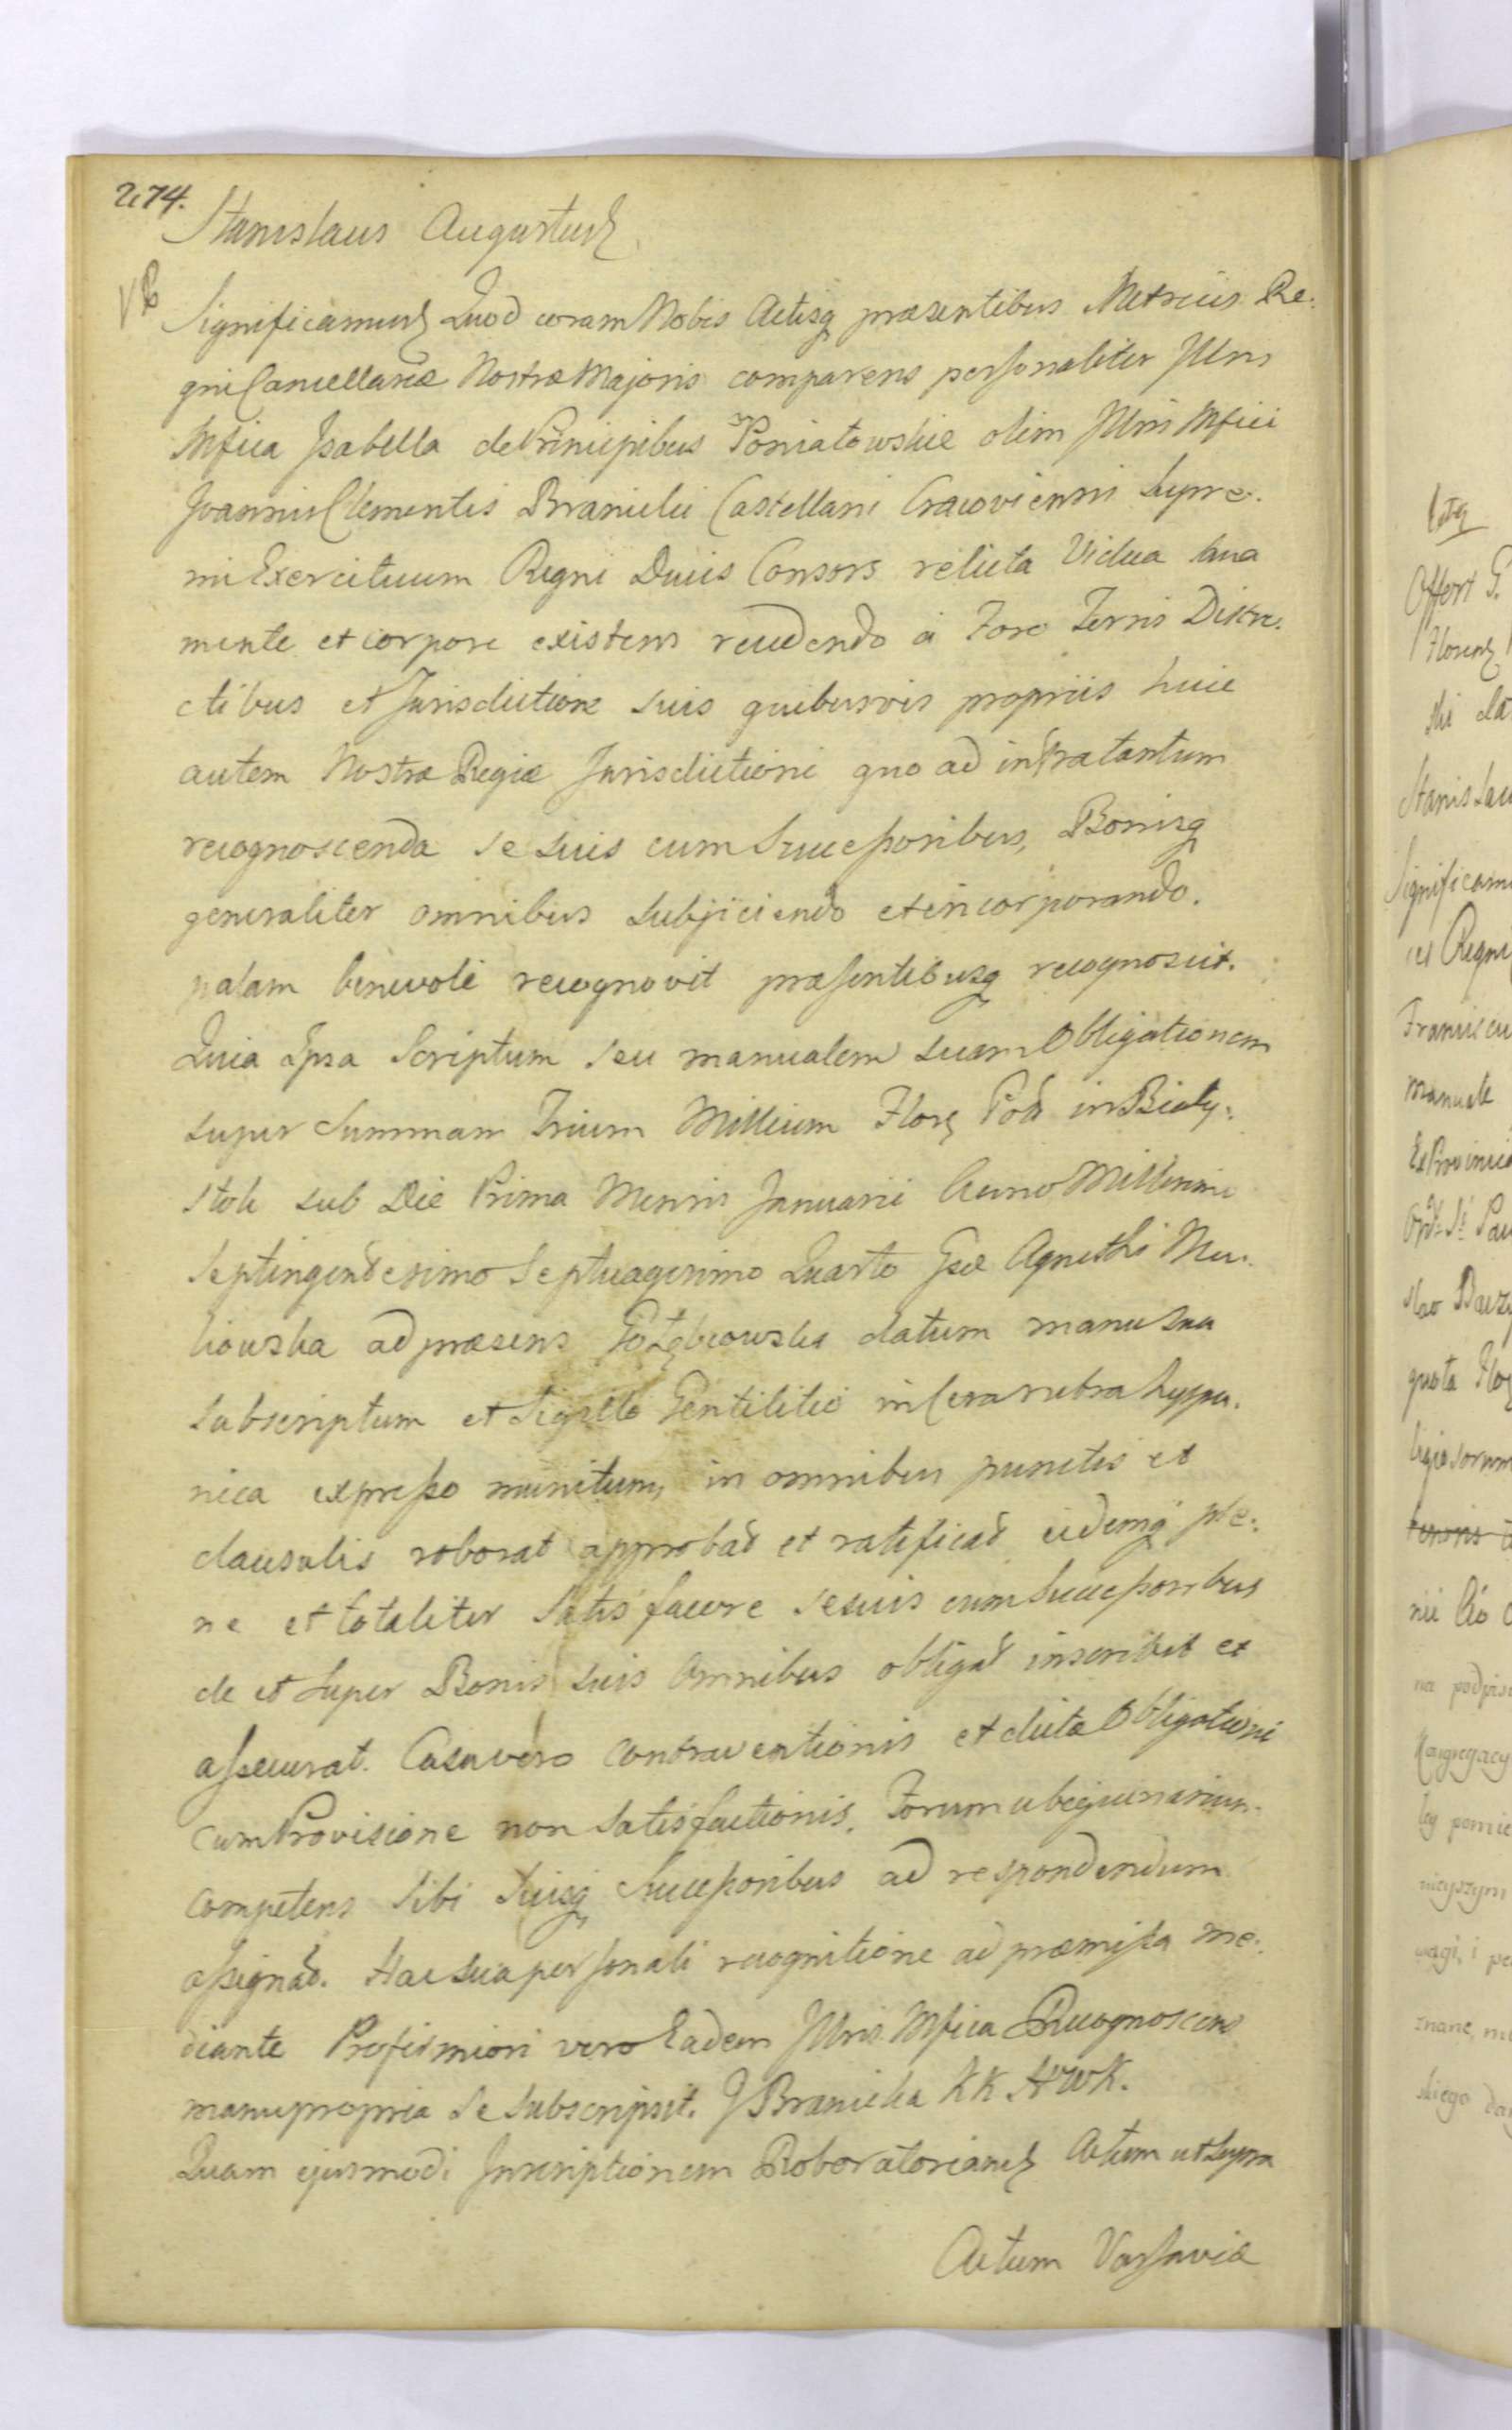 274.
Stanislaus Augustus
Significamus Quod coram Nobis Actisq præsentibus Metricis Re:
gni Cancellariæ Nostræ Majoris comparens personaliter Jllris
Mfica Jsabella de Principibus Poniatowskie olim Jllris Mfici
Joannis Clementis Branicki Castellani Cracoviensis Supre:
mi Exercituum Regni Ducis Consors relicta Vidua sana
mente et corpore existens recedendo à Foro Terris Distri:
ctibus et Jurisdictione suis quibusvis propriis huic
autem Nostræ Regiæ Jurisdictioni quo ad infratantum
recognoscenda se suis cum Successoribus, Bonisq
generaliter omnibus subjiciendo et incorporando.
palam benevole recognovit præsentibusq recognoscit.
Quia Ipsa Scriptum seu manualem suam Obligationem
super Summam Trium Millium Flor Pol in Biały:
stok sub Die Prima Mensis Januarii Anno Millesimo
Septingentesimo Septuagesimo Quarto Gsæ Agnethi
ad præsens datum manu sua
subscriptum et Sigillo Gentilitio in Cera rubra hyspa:
nica expresso munitum, in omnibus punctis et
clausulis roborat approbat et ratificat eidemq ple:
ne et totaliter Satisfacere se suis cum Successoribus
de et super Bonis suis Omnibus obligat inscribit et
assecurat. Casu vero contraventionis et dictæ Obligationi
cum Provisione non satisfactionis, Forum ubiquinarium
competens sibi suisq Successoribus ad respondendum
assignat. Hac sua personali recognitione ad præmissa me:
diante Pro firmiori vero Eadem Jllris Mfica Recognoscens
manu propria se subscripsit. J Branicka KK HWK.
Quam ejusmodi Jnscriptionem Roboratoriam Actum ut supra
Actum Varsaviæ